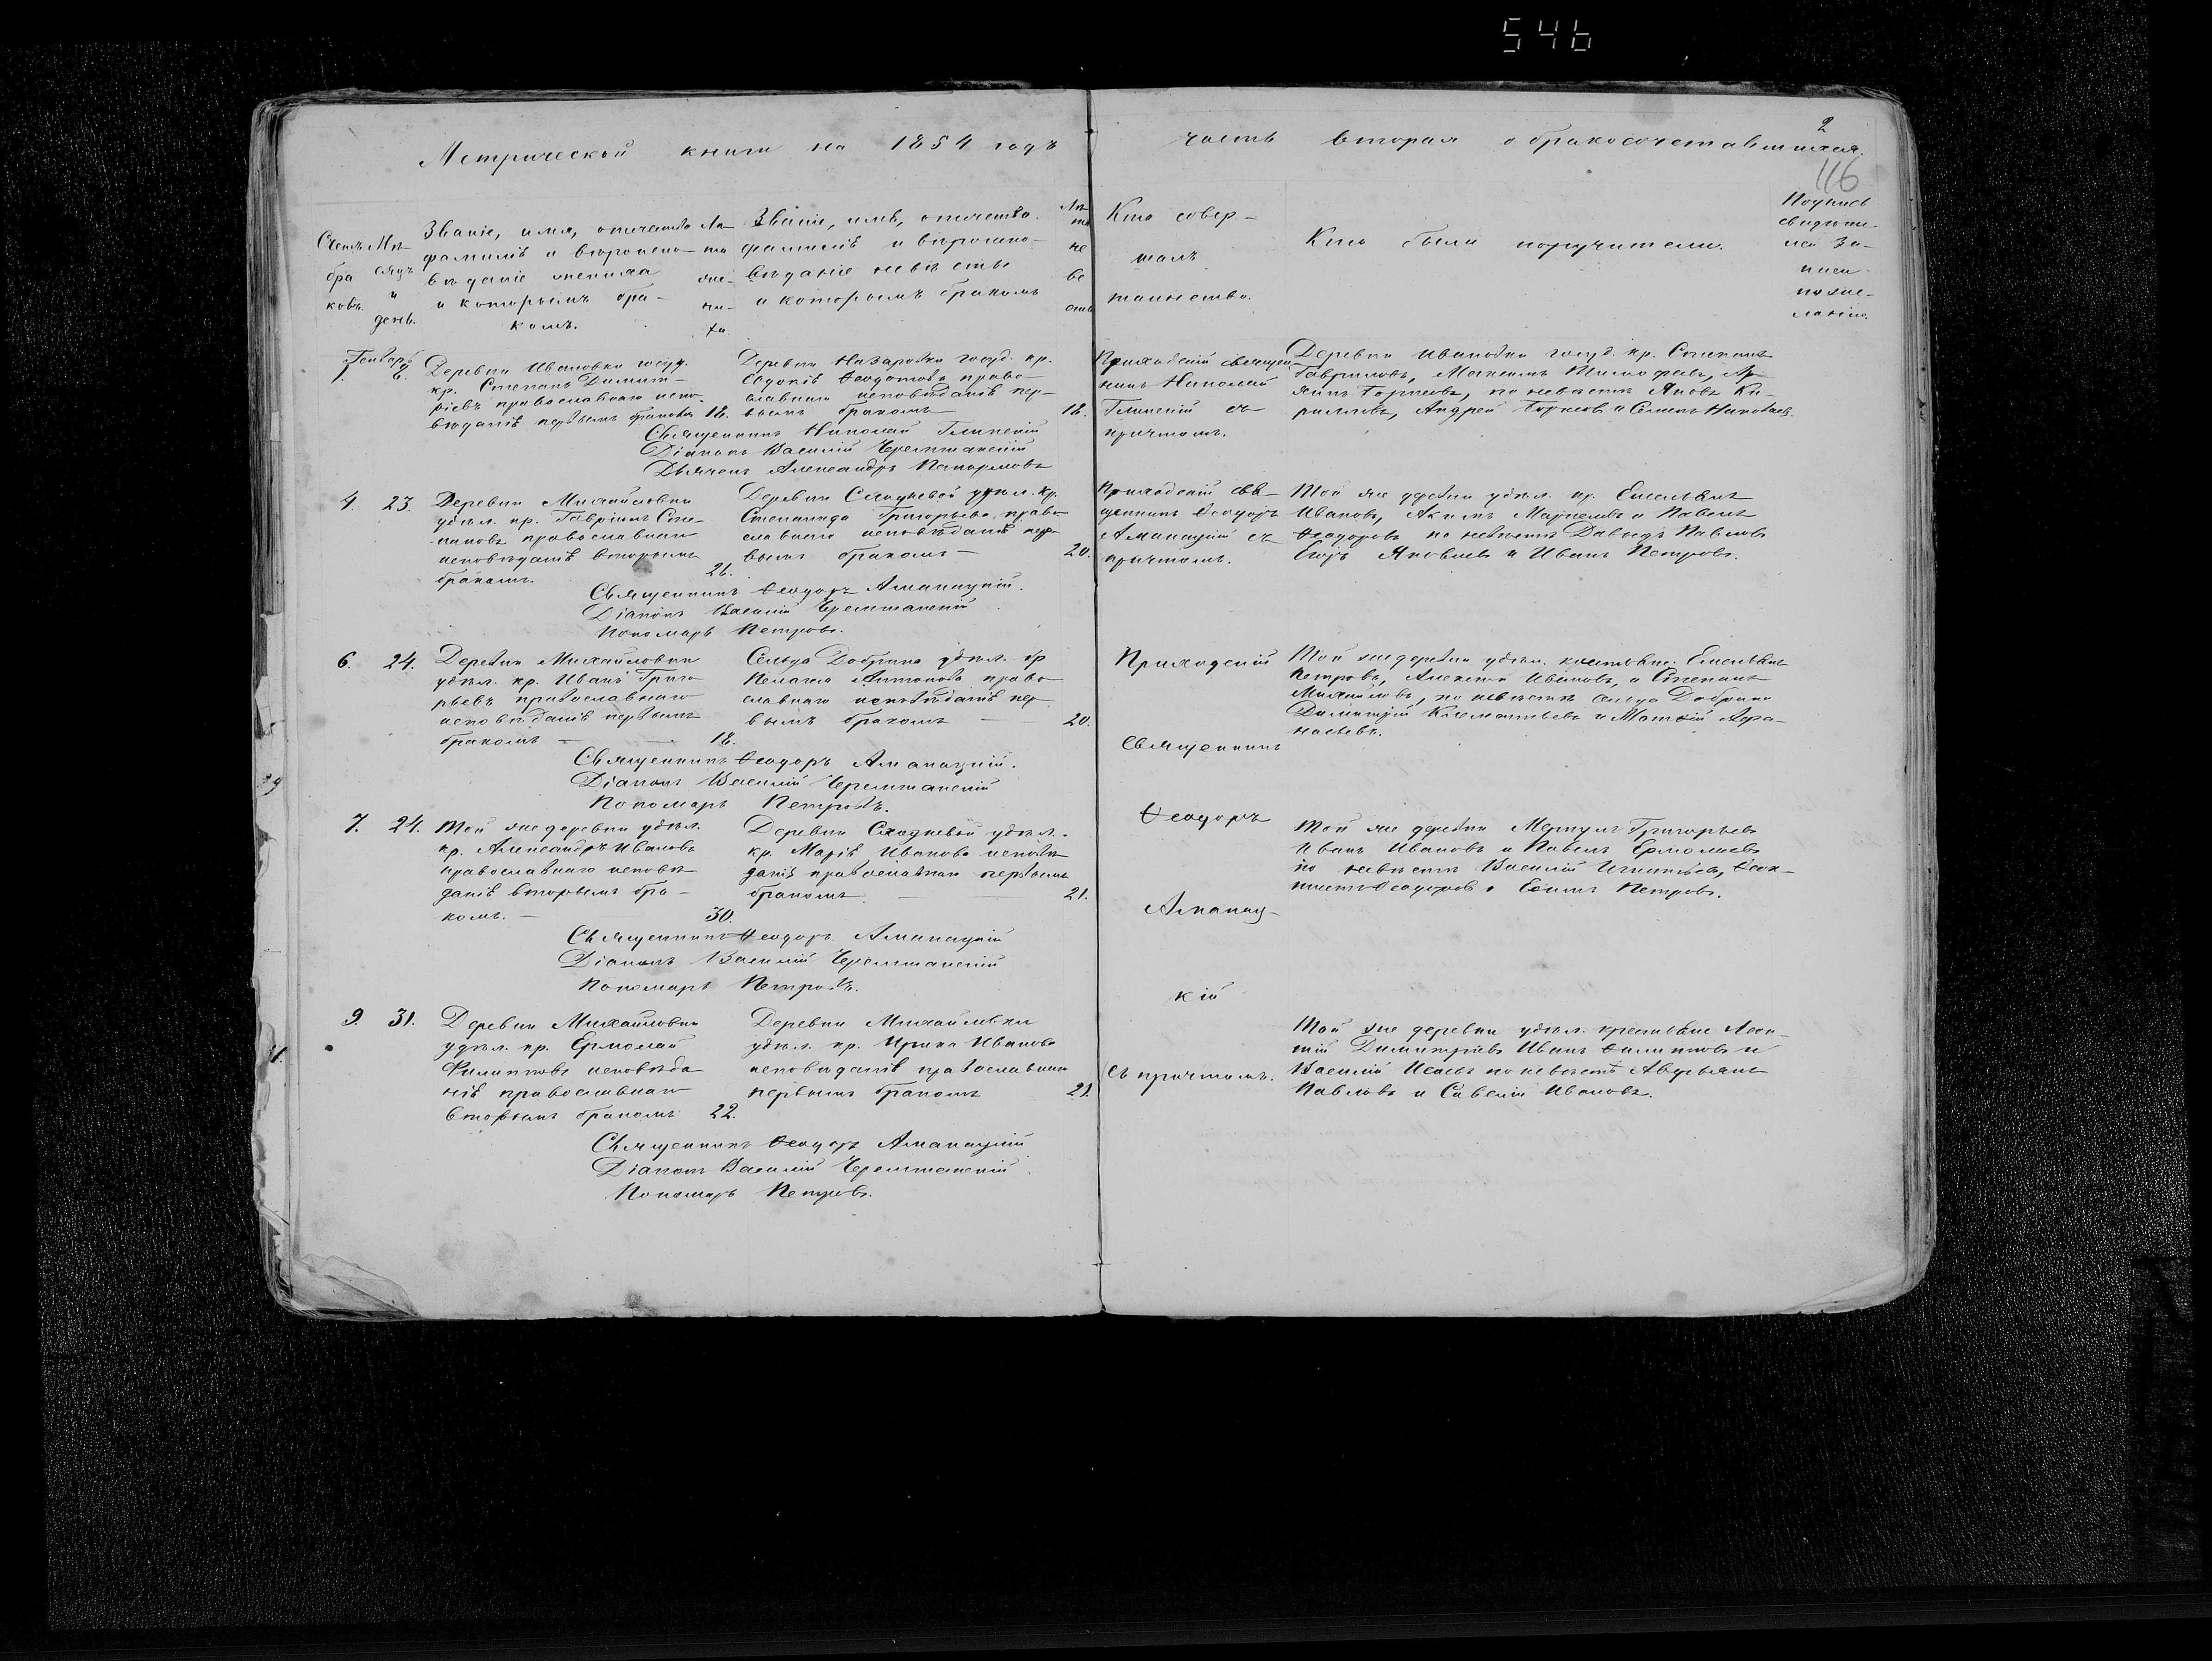 546
Метрической книги на 1854 годъ
часть вторая о бракосочетавшихся.
2
116
Счетъ бра ковъ.
Мѣ сяцъ и день.
Званіе, имя, отчество
фамилія и вѣроиспо-
вѣданіе жениха
и которымъ бра-
комъ.
Лѣ-
та
же-
ни-
ха
Званіе, имя, отчество.
фамилія и вѣроиспо-
вѣданіе невѣсты
и которымъ бракомъ
Лѣ-
та
не
ве
сты
Кто совер-
шалъ
таинство.
Кто были поручители.
Подпись
свидѣте-
лей за-
писи
по же-
ланію.
Генварь
1. 8.
Деревни Ивановки госуд.
кр. Степанъ Димит-
ріевъ православнаго испо-
вѣданія первымъ бракомъ 18.
Деревни Назаровки госуд. кр.
Евдокія Ѳеодотова право-
славнаго исповѣданія пер-
вымъ бракомъ 18.
Приходскій священ
никъ Николай
Глинскій съ
причтомъ.
Деревни Ивановки госуд. кр. Степанъ
Гавриловъ, Максимъ Тимофеевъ,
по невѣстѣ Яковъ Ки-
рилловъ, Андрей и Семенъ Николаевъ.
Священникъ Николай Глинскій
Діаконъ Василій Черемшанскій
Дьячекъ Александръ
4. 23.
Деревни Михайловки
удѣл. кр. Гавріилъ Сте-
пановъ православнаго
исповѣданія вторымъ
бракомъ. 26.
Деревни Сходневой удѣл. кр.
Степанида Григорьева право-
славнаго исповѣданія пер-
вымъ бракомъ — 20.
Приходскій свя-
щенникъ Ѳеодоръ
Аманацкій съ
причтомъ.
Той же деревни удѣл. кр. Емельянъ
Ивановъ, Акимъ и Павелъ
Ѳеодоровъ по невѣстѣ Давыдъ Павловъ
Егоръ Яковлевъ и Иванъ Петровъ.
Священникъ Ѳеодоръ Аманацкій.
Діаконъ Василій Черемшанскій
Пономарь Петровъ.
6. 24.
Деревни Михайловки
удѣл. кр. Иванъ Григо
рьевъ православнаго
исповѣданія первымъ
бракомъ — 18.
Сельца Добрина удѣл. кр
Пелагея Антонова право
славнаго исповѣданія пер
вымъ бракомъ — 20.
Приходскій
Той же деревни удѣл. крестьяне. Емельянъ
Петровъ, Алексѣй Ивановъ, и Степанъ
Михайловъ, по невѣстѣ сельца Добрина
Димитрій Клементьевъ и Матвѣй Афа-
насьевъ.
Священникъ
Священникъ Ѳеодоръ Аманацкій.
Діаконъ Василій Черемшанскій
Пономарь Петровъ.
7. 24.
Той же деревни удѣл.
кр. Александръ Ивановъ
православнаго исповѣ
данія вторымъ бра-
комъ. — 30.
Деревни Сходневой удѣл.
кр. Марія Иванова исповѣ
данія православнаго первымъ
бракомъ — 21.
Ѳеодоръ
Той же деревни Меркулъ Григорьевъ
Иванъ Ивановъ и Павелъ Ермолаевъ
по невѣстѣ Василій Игнатьевъ, Ѳеок-
тистъ Ѳеодоровъ и Ефимъ Петровъ.
Аманац-
Священникъ Ѳеодоръ Аманацкій
Діаконъ Василій Черемшанскій
Пономарь Петровъ.
кій
9. 31.
Деревни Михайловки
удѣл. кр. Ермолай
Филипповъ исповѣда
нія православнаго
вторымъ бракомъ 22.
Деревни Михайловки
удѣл. кр. Ирина Иванова
исповѣданія православнаго
первымъ бракомъ 21.
съ причтомъ.
Той же деревни удѣл. крестьяне Леон-
тій Димитріевъ Иванъ Филипповъ и
Василій Исаевъ по невѣстѣ Аверьянъ
Павловъ и Савелій Ивановъ.
Священникъ Ѳеодоръ Аманацкій
Діаконъ Василій Черемшанскій
Пономарь Петровъ.